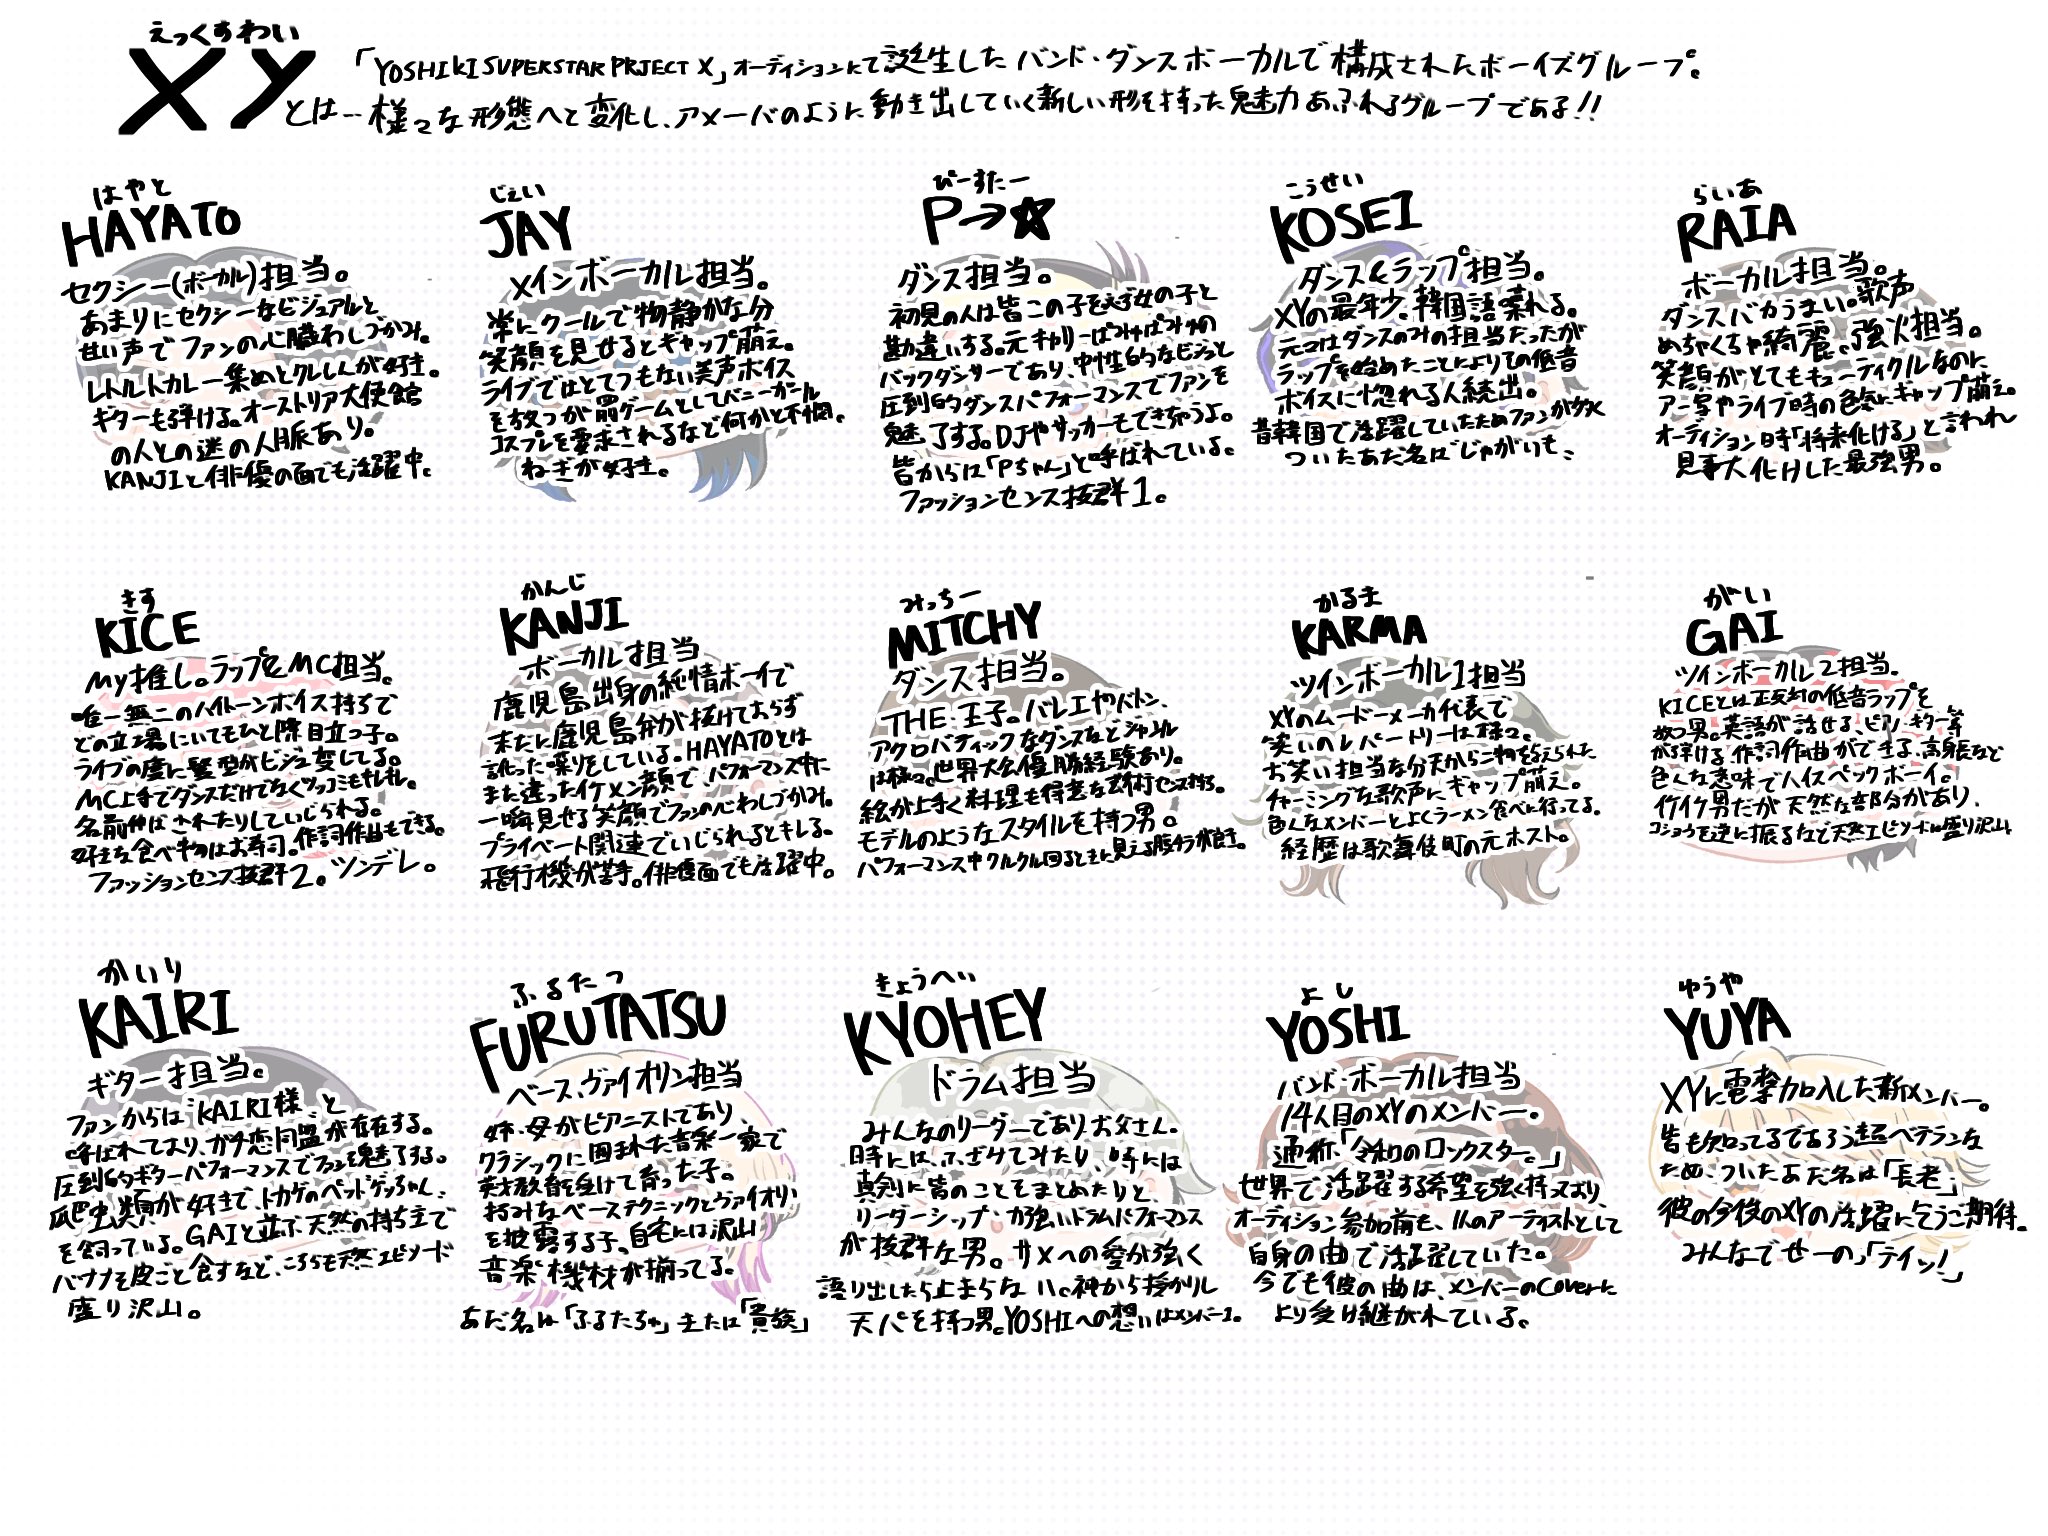 えっくすわい
XY
「YOSHIKI SUPERSTAR PRJECT X」オーディションにて誕生したバンド・ダンスボーカルで構成されたボーイズグループ。
とは…様々な形態へと変化し、アメーバのように動き出していく新しい形を持った魅力あふれるグループである!!
はやと
HAYATO
セクシー(ボーカル)担当。
あまりにセクシーなビジュアルと
甘い声でファンの心臓わしづかみ。
レトルトカレー集めとクレしんが好き。
ギターも弾ける。オーストリア大使館
の人との謎の人脈あり。
KANJIと俳優の面でも活躍中。
じぇい
JAY
メインボーカル担当。
常にクールで物静かな分
笑顔を見せるとギャップ萌え。
ライブではとてつもない美声ボイス
を放つが罰ゲームとしてバニーガール
コスプレを要求されるなど何かと不憫。
ねぎが好き。
ぴーすたー
P→☆
ダンス担当。
初見の人は皆この子を女の子と
勘違いする。元きゃりーぱみゅぱみゅの
バックダンサーであり、中性的なビジュと
圧倒的ダンスパフォーマンスでファンを
魅了する。DJやサッカーもできちゃうよ。
皆からは「Pちゃん」と呼ばれている。
ファッションセンス抜群1。
こうせい
KOSEI
ダンス&ラップ担当。
XYの最年少。韓国語喋れる。
元々はダンスのみの担当だったが
ラップを始めたことによりその低音
ボイスに惚れる人続出。
昔韓国で活躍していたためファンが
ついたあだ名は"じゃがいも、
らいあ
RAIA
ボーカル担当。
ダンスバカうまい。歌声
めちゃくちゃ綺麗。強火担当。
笑顔がとてもキューティクルなのに、
アー写やライブ時の色気にギャップ萌え。
オーディション時「将来化ける」と言われ
見事大化けした最強男。
きす
KICE
My推し。ラップとMC担当。
唯一無二のハイトーンボイス持ちで
どの立場にいてもひと際目立つ子。
ライブの度に髪型がビジュ変してる。
MC上手でダンスだけでなくツッコミもキレキレ。
名前伸ばされたりしていじられる。
好きな食べ物はお寿司。作詞作曲もできる。
ファッションセンス抜群2。ツンデレ。
かんじ
KANJI
ボーカル担当
鹿児島出身の純情ボーイで
未だに鹿児島弁が抜けておらず
訛った喋りをしている。HAYATOとは
また違ったイケメン顔で、パフォーマンス中に
一瞬見せる笑顔でファンの心わしづかみ。
プライベート関連でいじられるとキレる。
飛行機が苦手。俳優面でも活躍中。
みっちー
MITCHY
ダンス担当。
THE・王子。バレエやバトン、
アクロバティックなダンスなどジャンル
は様々。世界大会優勝経験あり。
絵が上手く料理も得意な芸術センス持ち。
モデルのようなスタイルを持つ男。
パフォーマンス中クルクル回るときに見える腹チラが良き。
かるま
KARMA
ツインボーカル1担当
XYのムードーメーカ代表で
笑いのレパートリーは様々。
お笑い担当な分天から二物を与えられた
チャーミングな歌声にギャップ萌え。
色んなメンバーとよくラーメン食べに行ってる。
経歴は歌舞伎町の元ホスト。
がい
GAI
ツインボーカル2担当。
KICEとは正反対の低音ラップを
奴男。英語が話せる、ピアノ・ギター等
が弾ける、作詞作曲ができる、高身長など
色んな意味でハイスペックボーイ。
イケイケ男だが天然な部分があり、
コショウを逆に振るなで天然エピソードは盛り沢山
かいり
KAIRI
ギター担当。
ファンからは"KAIRI様"と
呼ばれており、ガチ恋同盟が存在する。
圧倒的ギターパフォーマンスでファンを魅了する。
爬虫類が好きで、トカゲのペット「ゲッちゃん」
を飼っている。GAIと並ぶ天然の持ち主で
バナナを皮ごと食すなど、こちらも天然エピソード
盛り沢山。
ふるたつ
FURUTATSU
ベース、ヴァイオリン担当
姉、母がピアニストであり、
クラシックに囲まれた音楽一家で
英才教育を受けて育った子。
巧みなベーステクニックとヴァイオリン
を披露する子、自宅には沢山
音楽機材が揃ってる。
あだ名は「ふるたちゃ」または「貴族」
きょうへい
KYOHEY
ドラム担当
みんなのリーダーであり、お父さん。
時には、ふざけてみたり、時には
真剣に皆のことをまとめたりと、
リーダーシップ・力強いドラムパフォーマンス
が抜群な男。サメへの愛が強く
語り出したら止まらない。神から授かりし
天パを持つ男。YOSHIへの想いはメンバー1。
よし
YOSHI
バンド・ボーカル担当
14人目のXYのメンバー。
通称、「令和のロックスター。」
世界で活躍する希望を強く持っており、
オーディション参加前も、1人のアーティストとして
自身の曲で活躍していた。
今でも彼の曲は、メンバーのCoverに
より受け継がれている。
ゆうや
YUYA
XYに電撃加入した新メンバー。
皆も知ってるであろう超ベテランな
ため、ついたあだ名は「長老」
彼の今後のXYの活躍に乞うご期待。
みんなでせーの、「テイッ!」